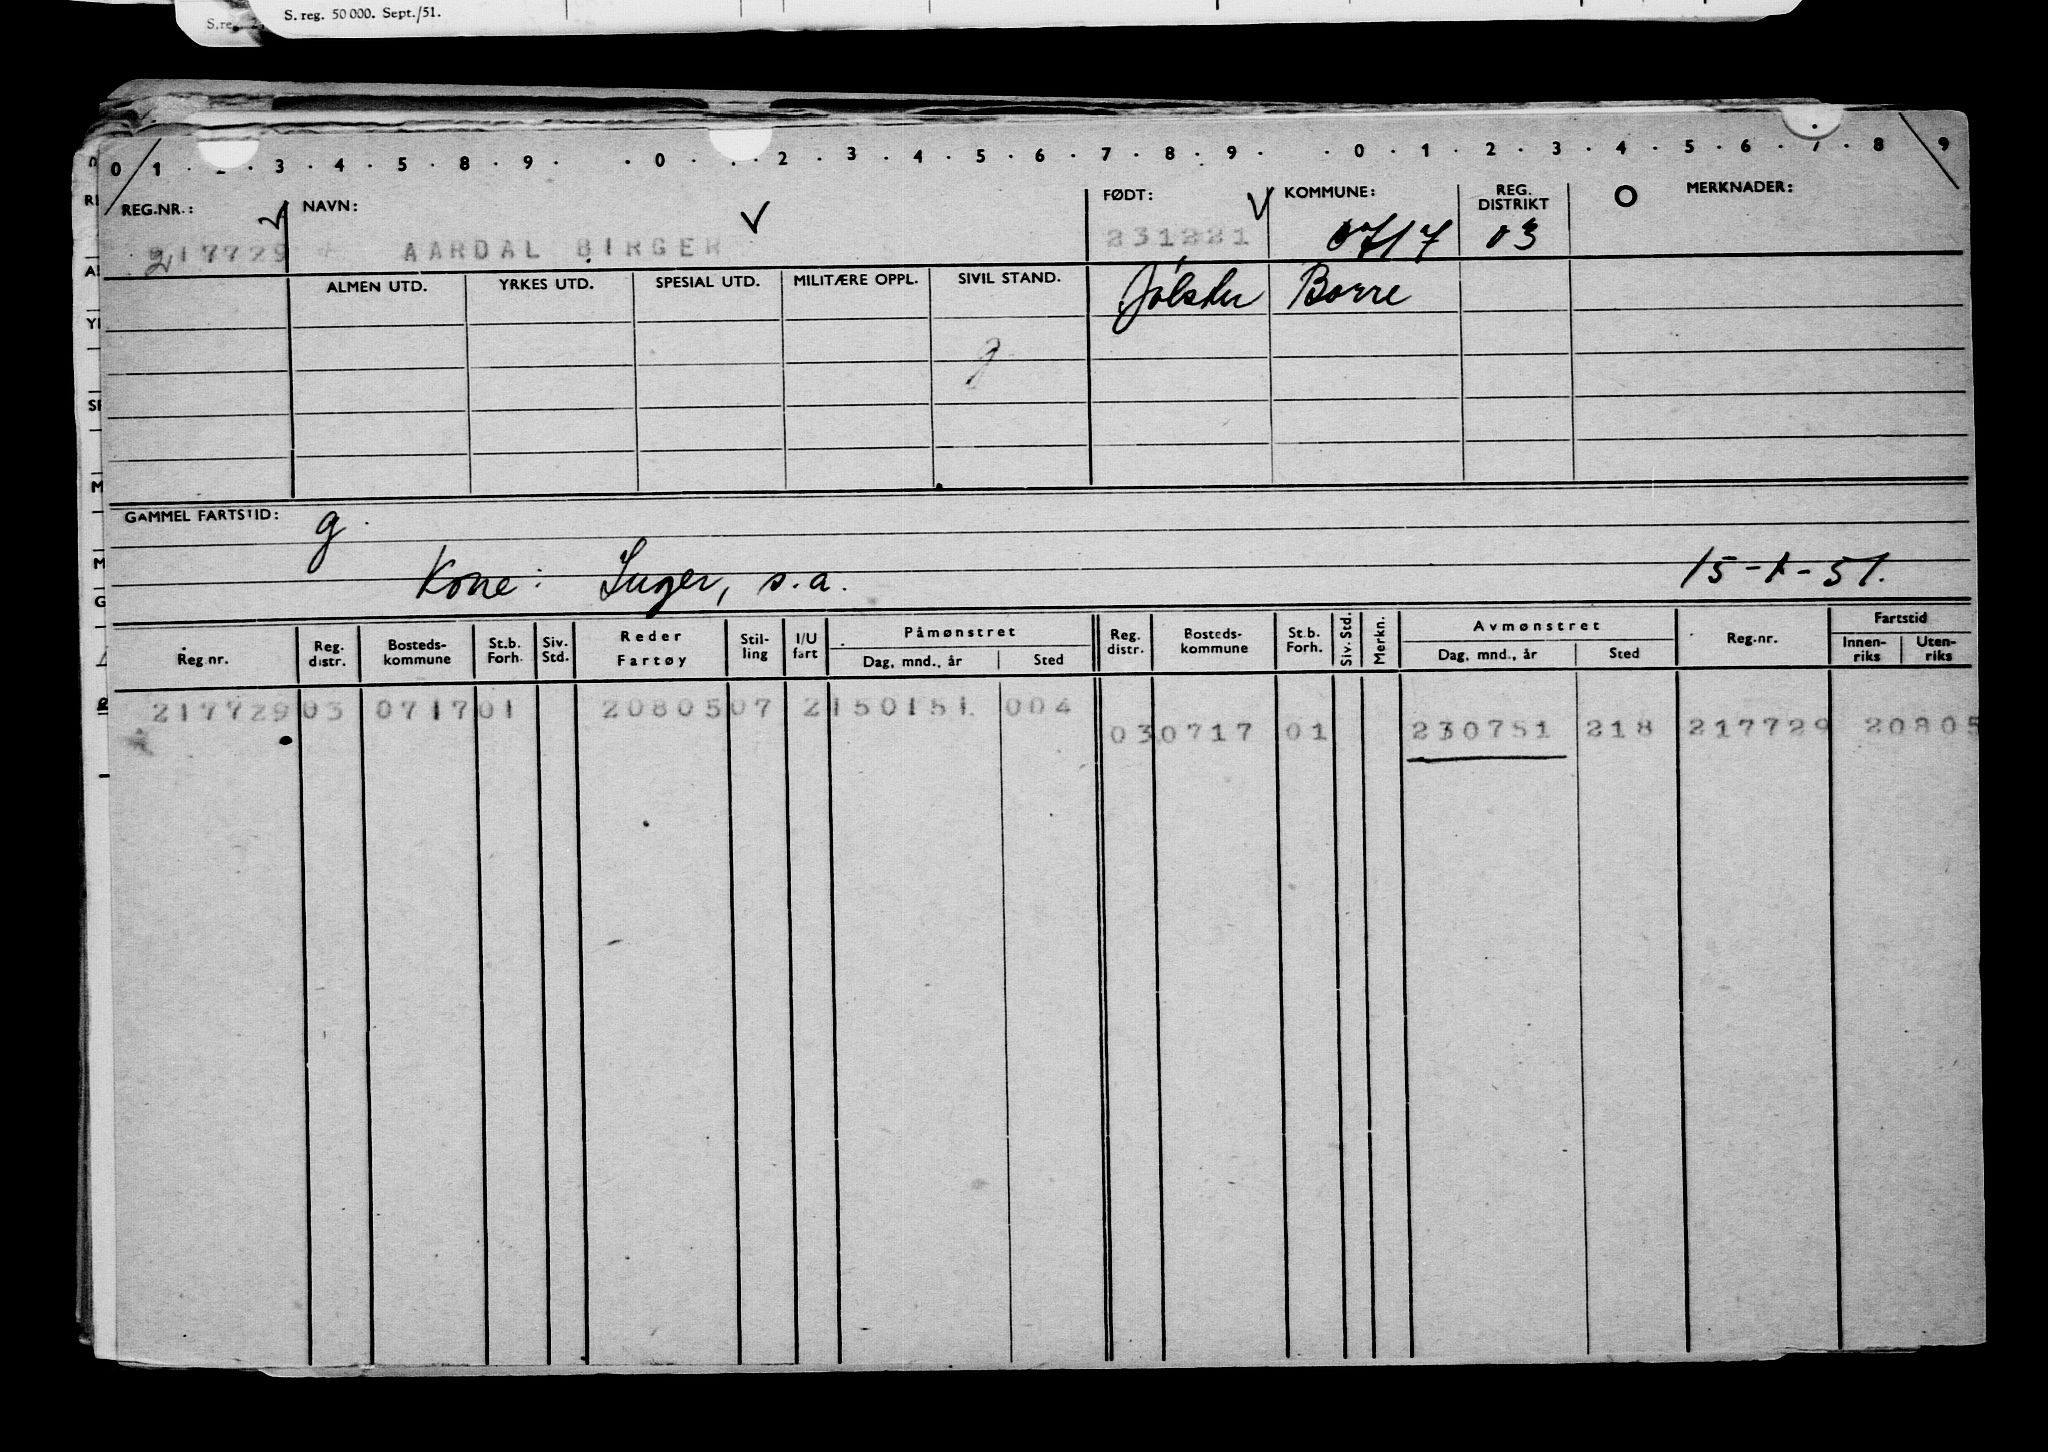 S. reg. 50 000. Sept./51.
S.re
0 1 . . 3 . 4 . 5 . 8 . 9 . . 0 . . 2 . 3 . 4 . 5 . 6 . 7 . 8 . 9 . . 0 . 1 . 2 . 3 . 4 . 5 . 6 . 7 . 8 9
REG.NR.: NAVN: FØDT: KOMMUNE: REG. DISTRIKT O MERKNADER:
217729 AARDAL BIRGER 231221 0717 03
ALMEN UTD. YRKES UTD. SPESIAL UTD. MILITÆRE OPPL. SIVIL STAND. Jølster Borre
g
GAMMEL FARTSTID: g.
Kone: Inger, s.a. 15-1-51.
Reg.nr. Reg. distr. Bosteds-kommune St.b. Forh. Siv. Std. Reder Fartøy Stil-ling I/U fart Påmønstret Dag, mnd., år Sted Reg. distr. Bosteds-kommune St.b. Forh. Siv. Std. Merkn. Avmønstret Dag, mnd., år Sted Reg.nr. Fartstid Innen-riks Uten-riks
217729 03 0717 01 20805 07 2 150151 004
03 0717 01 230751 218 217729 20805